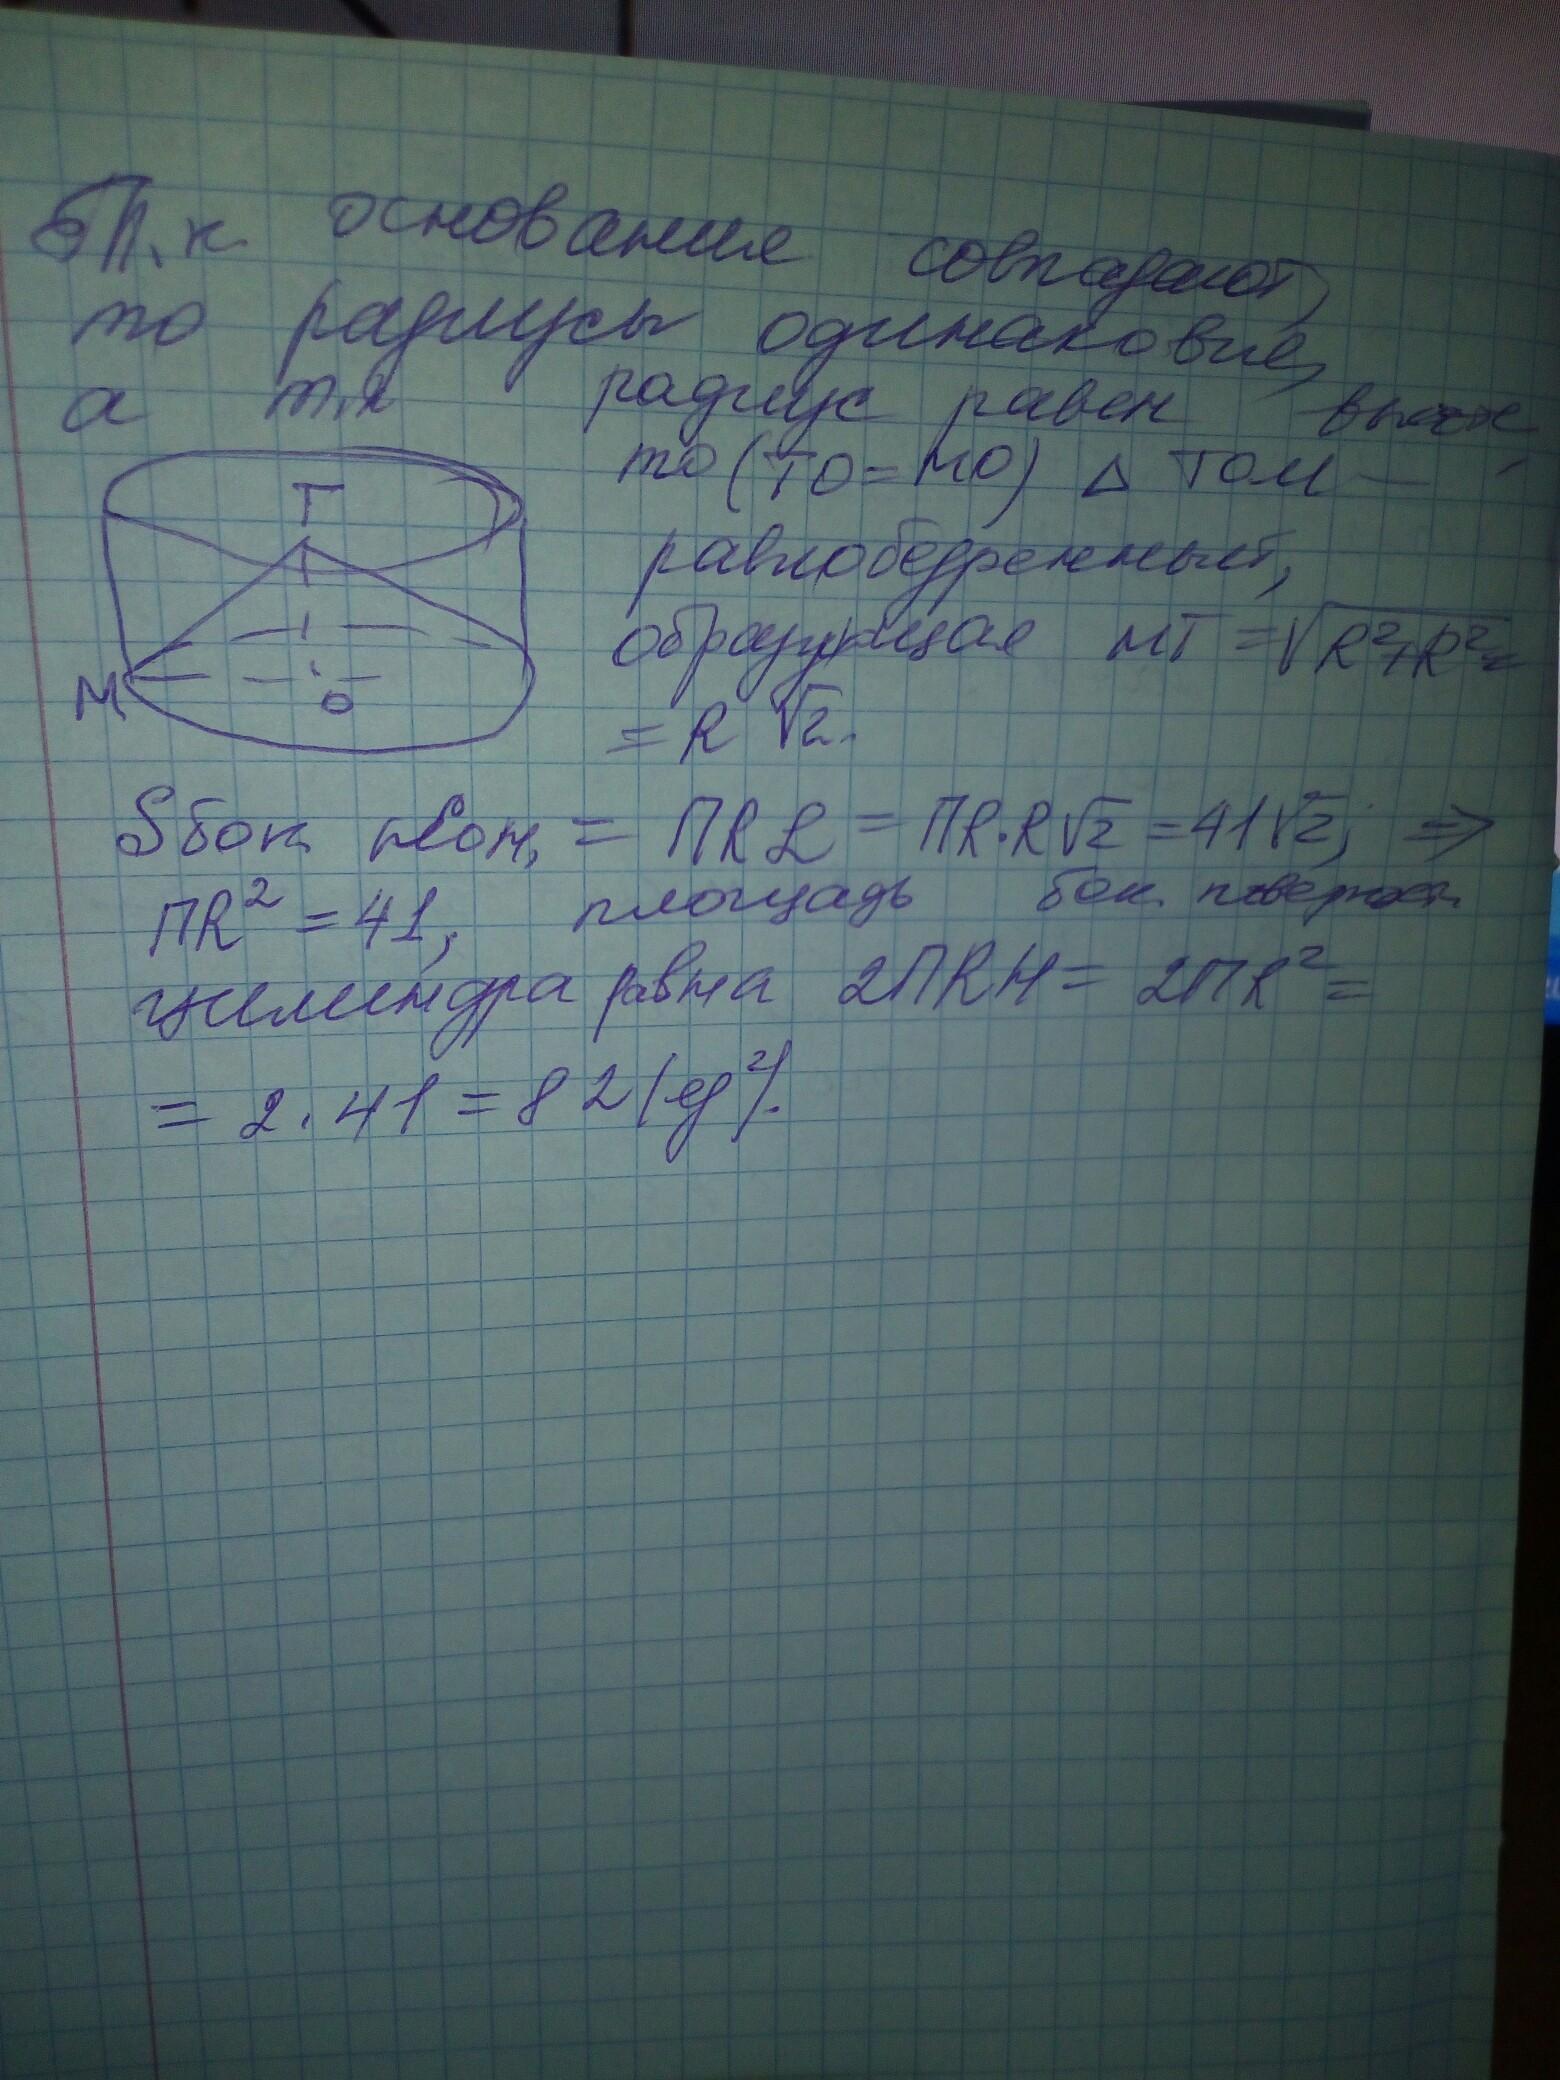 Т.к основания совпадают,
то радиусы одинаковые,
а т.к радиус равен высоте,
то (ТО=МО) Δ ТОМ —
Т
равнобедренный,
образующая МТ = √R²+R² =
М
О
= R √2.
Sбок кон. = ПRL = ПR·R√2 = 41√2; ⇒
ПR² = 41, площадь бок. поверхност.
цилиндра равна 2ПRH = 2ПR² =
= 2·41 = 82 (ед²).